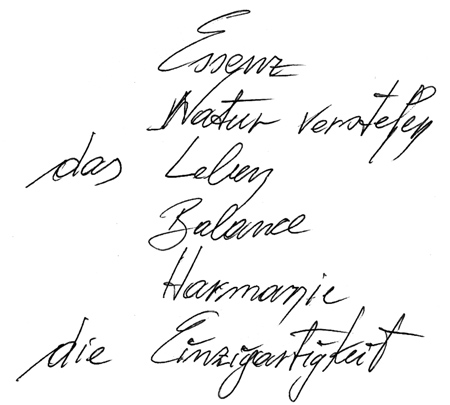 Essenz
Natur verstehen
das Leben
Balance
Harmonie
die Einzigartigkeit